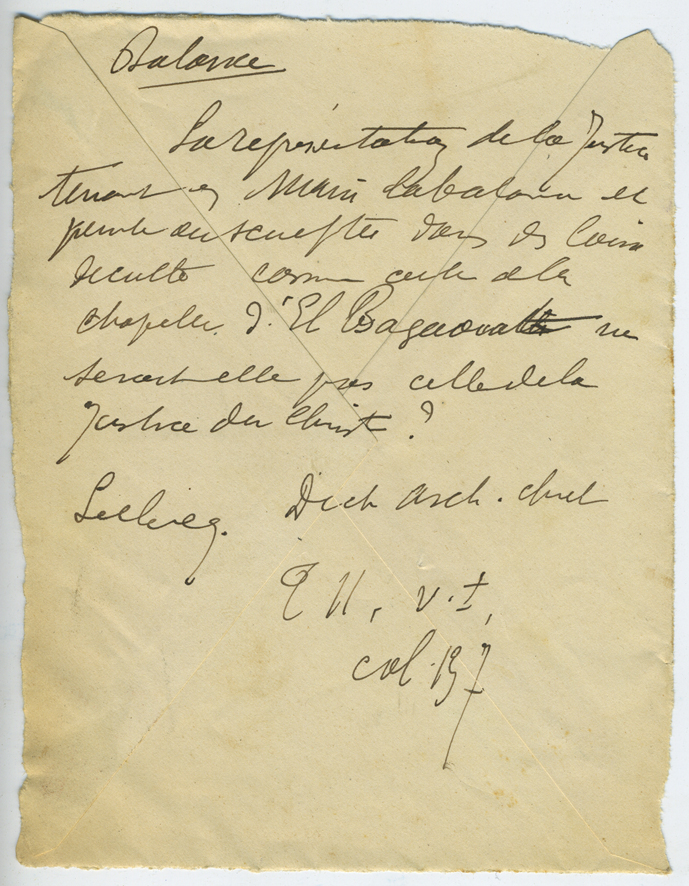 Balance
La représentation de la Justice
tenant en main la balance et
peinte ou sculptée dans des lieux
de culte comme celle de la
chapelle d'El Bagaouat ne
serait elle pas celle de la
Justice du Christ ?
Leclercq. Dict. arch. chret
T II, v. I,
col. 137